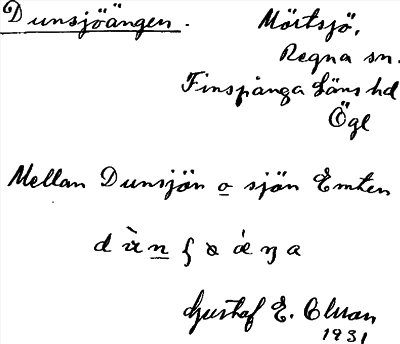 Dunsjöängen.
Mörtsjö,
Regna sn.
Finspånga läns hd
Ögl
Mellan Dunsjön o sjön Emten
Gustaf E.
1931